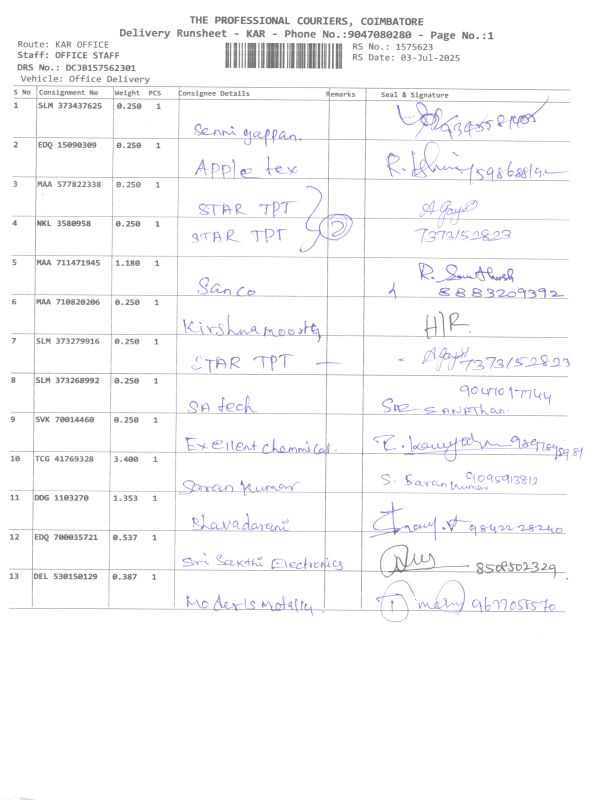 THE PROFESSIONAL COURIERS, COIMBATORE
Delivery Runsheet - KAR - Phone No.:9047080280 - Page No.:1
Route: KAR OFFICE
RS No.: 1575623
Staff: OFFICE STAFF
RS Date: 03-Jul-2025
DRS No.: DCJB157562301
Vehicle: Office Delivery
S No Consignment No Weight PCS Consignee Details Remarks Seal & Signature
1 SLM 373437625 0.250 1
Senni yappan.
2 EDQ 15090309 0.250 1
Apple tex
3 MAA 577822338 0.250 1
STAR TPT
4 NKL 3580958 0.250 1
STAR TPT 2 7373152823
5 MAA 711471945 1.180 1
Sanco 8883209392
6 MAA 710820206 0.250 1
Kirshnamoorthy H/R
7 SLM 373279916 0.250 1
STAR TPT 7373152823
8 SLM 373268992 0.250 1
SA tech SANATHAN
9 SVK 70014460 0.250 1
Exellent Chemmical.
10 TCG 41769328 3.400 1
Saran Kumar S. Saran Kumar 9095913813
11 DDG 1103270 1.353 1
Bhavadarani 9842228240
12 EDQ 700035721 0.537 1
Sri Sakthi Electronics 8508502329
13 DEL 530150129 0.387 1
9677055570